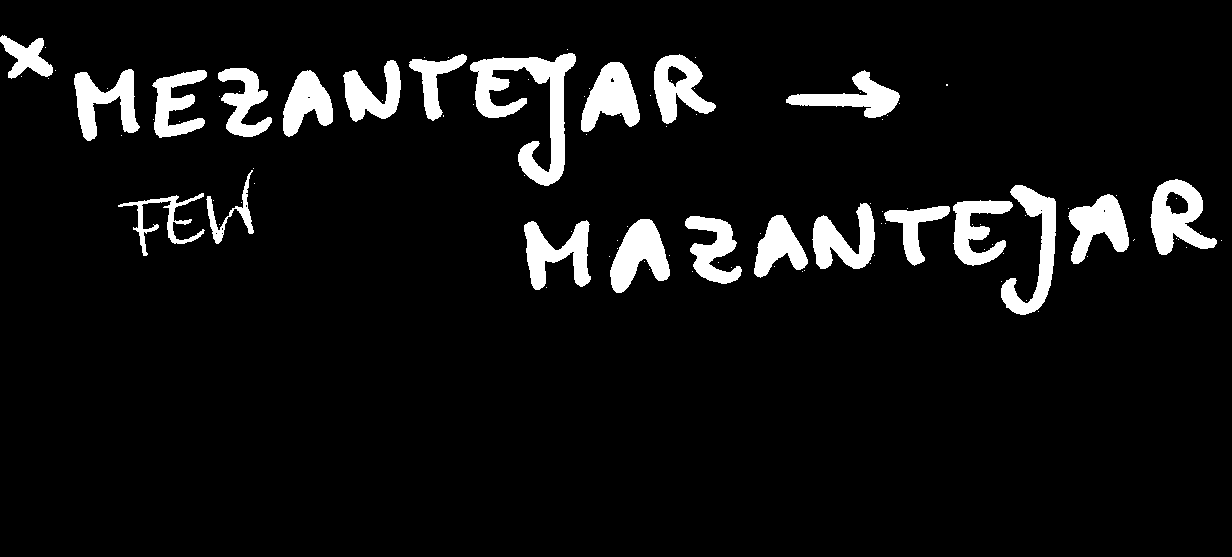 × MEZANTEJAR →
FEW
MAZANTEJAR